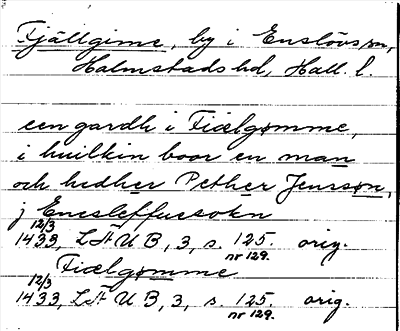 Fjällgime, by i Enslövs sn,
Halmstads hd, Hall. l.
een gardh i Fiælgømme,
i huilkin boor en man
och hedher Pether Jensson,
j Eneslef​fuesokn
12/3
1433, LÅUB, 3, s. 125. orig.
nr 129.
Fiælgømme
12/3
1433, LÅUB, 3, s. 125. orig.
nr 129.